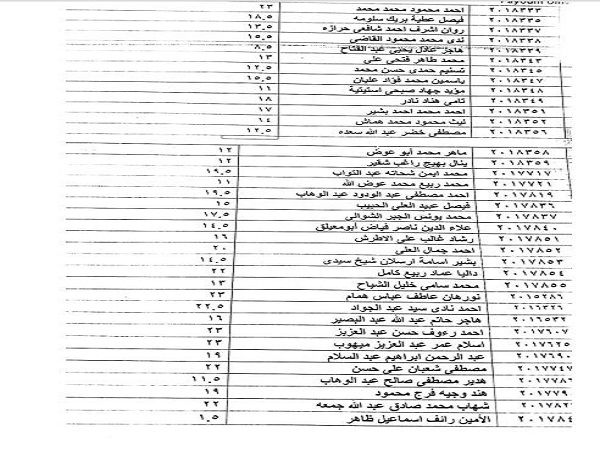 Fayoum Univ
٢٠١٨٣٣٣ احمد محمود محمد محمد ٢٣
٢٠١٨٣٣٥ فيصل عطية بريك سلومه ١٨.٥
٢٠١٨٣٣٧ روان اشرف احمد شافعي حرازه ١٣.٥
٢٠١٨٣٣٨ ندى محمد محمود القاضى ١٥.٥
٢٠١٨٣٣٩ هاجر عادل يحيى عبد الفتاح ٨.٥
٢٠١٨٣٤٣ محمد طاهر فتحى على ١٣
٢٠١٨٣٤٥ تسنيم حمدى حسن محمد ١٢.٥
٢٠١٨٣٤٧ ياسمين محمد فؤاد عليان ١٥.٥
٢٠١٨٣٤٨ مؤيد جهاد صبحى استيتية ١١
٢٠١٨٣٤٩ تامى هناد نادر ١٨
٢٠١٨٣٥١ احمد محمد احمد بشير ١٧
٢٠١٨٣٥٢ ليث محمود محمد هماش ١٤
٢٠١٨٣٥٦ مصطفى خضر عبد الله سعده ١٢.٥
٢٠١٨٣٥٨ ماهر محمد أبو عوض ١٢
٢٠١٨٣٥٩ ينال بهيج راغب شقير ١٢
٢٠١٧٧١٧ محمد ايمن شحاته عبد التواب ١٩.٥
٢٠١٧٧٢١ محمد ربيع محمد عوض الله ١١
٢٠١٧٨١٩ احمد مصطفى عبد الودود عبد الوهاب ١٩.٥
٢٠١٧٨٣٦ فيصل عبيد العلى الحبيب ١٥
٢٠١٧٨٣٧ محمد يونس الجبر الشوالى ١٧.٥
٢٠١٧٨٤٠ علاء الدين ناصر فياض أبومعيلق ١٤.٥
٢٠١٧٨٥١ رشاد غالب على الاطرش ١٦
٢٠١٧٨٥٢ احمد جمال العلى ٢٠
٢٠١٧٨٥٣ بشير اسامة ارسلان شيخ سيدى ١٤.٥
٢٠١٧٨٥٤ داليا عماد ربيع كامل ٢٢
٢٠١٧٨٥٥ محمد سامى خليل الشياح ١٣
٢٠١٥٢٨٦ نورهان عاطف عباس همام ٢٣
٢٠١٦٣٢٦ احمد نادى سيد عبد الجواد ٢٢.٥
٢٠١٦٥٣٢ هاجر حاتم عبد الله عبد البصير ١٦
٢٠١٧٦٠٧ احمد رءوف حسن عبد العزيز ٢٣
٢٠١٧٦٢٥ اسلام عمر عبد العزيز ميهوب ٢٣
٢٠١٧٦٩٠ عبد الرحمن ابراهيم عبد السلام ١٩
٢٠١٧٧٤٧ مصطفى شعبان على حسن ٢٢
٢٠١٧٧٨٦ هدير مصطفى صالح عبد الوهاب ١١.٥
٢٠١٧٧٩ هند وجيه فرج محمود ١٩
٢٠١٧٨٢ شهاب محمد صادق عبد الله جمعه ٢٢
٢٠١٧٨٤ الأمين رائف اسماعيل ظاهر ١.٥